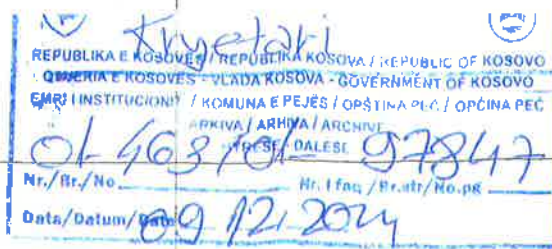 Kryetari
REPUBLIKA E KOSOVËS / REPUBLIKA KOSOVA / REPUBLIC OF KOSOVO
QEVERIA E KOSOVËS - VLADA KOSOVA - GOVERNMENT OF KOSOVO
EMRI I INSTITUCIONIT / KOMUNA E PEJËS / OPŠTINA PEĆ / OPĆINA PEĆ
ARKIVA / ARHIVA / ARCHIVE
DALËSE
01-463/01- 97847
Nr./Br./No Nr. i faq /Br.str/No.pg
Data/Datum/Date 09 12.2024